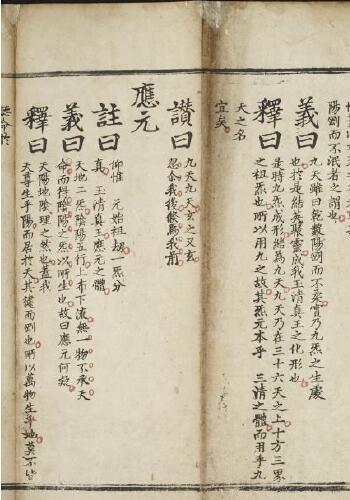 陽剛而不泯者之謂也
義曰
九天雖曰乾數陽剛而不柔實乃九炁之生
也於是結英聚靈成我玉清真王之化形也
釋曰
是時九炁成形結為九天九天乃在三十六天之上十方三界
之祖炁也所以用九之故其炁元本乎 三清之體而用乎九
天之名
宜矣
讚曰
九天九天玄之又玄
忽我後倏焉我前
應元
註曰
仰惟 元始祖刼一炁分
真 玉清真王應元之體
義曰
天地二炁陰陽五行上布下流無一物不承天
命而得陰陽之炁以所生也故曰應元何
釋曰
天陽地陰理之然也蓋我
天尊生乎陽而居於天其健而剛也所以萬物生乎地莫不皆